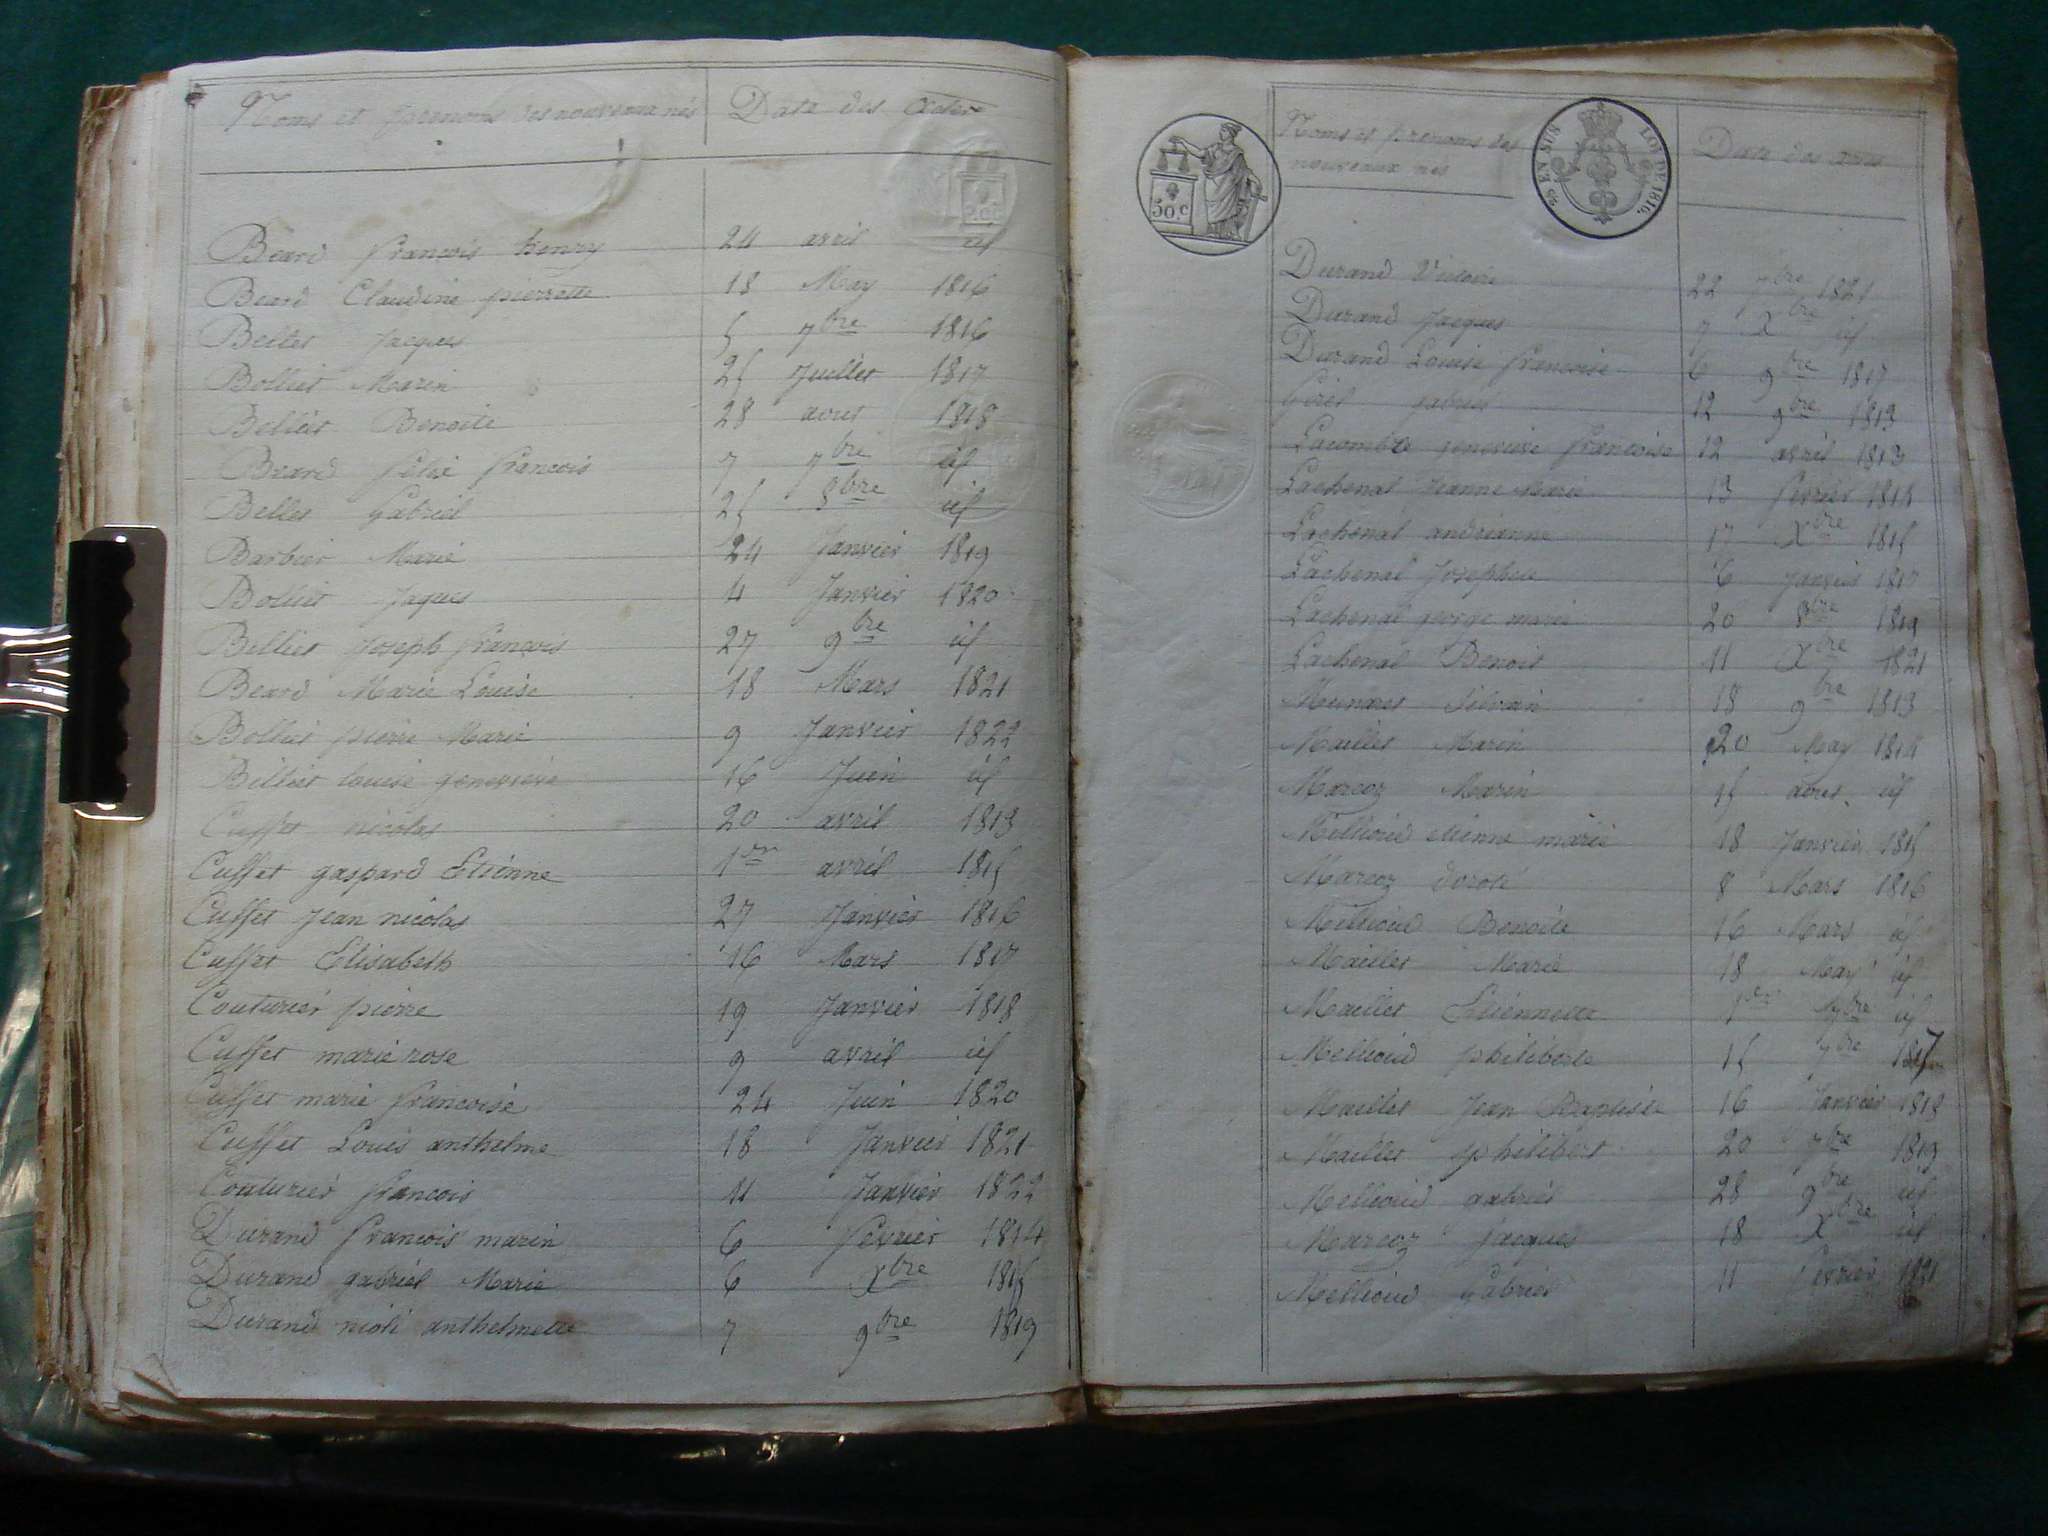 Noms et prenoms des nouveaux nés Date des actes
Beard françois henry 24 avril id
Beard Claudine pierrette 18 May 1816
Bellet Jacques 5 7bre 1816
Bolliet Marin 25 Juillet 1817
Belliet Benoite 28 aout 1818
Beard félix françois 7 7bre id
Bellet Gabriel 25 8bre id
Barbier Marie 24 Janvier 1819
Bolliet Jaques 4 Janvier 1820
Belliet Joseph françois 27 9bre id
Beard Marie Louise 18 Mars 1821
Bolliet pierre Marie 9 Janvier 1822
Billiet louise genevieve 16 Juin id
Cuffet nicolas 20 avril 1813
Cuffet gaspard Etiénne 1er avril 1815
Cuffet Jean nicolas 27 Janvier 1816
Cuffet Elisabeth 16 Mars 1817
Couturiér piérre 19 Janvier 1818
Cuffet marie rose 9 avril id
Cuffet marie francoise 24 Juin 1820
Cuffet Louis anthelme 18 Janvier 1821
Couturiér francois 11 Janvier 1822
Durand francois marin 6 fevrier 1814
Durand gabriél Marie 6 Xbre 1815
Durand anthelmette 7 9bre 1819
50.c
2/10 EN SUS LOI DE 1816.
Noms et prenoms des Date des actes
nouveaux nés
Durand Victoire 22 7bre 1821
Durand Jacques 7 Xbre id
Durand Louise francoise 6 9bre 1817
gabriel 12 9bre 1813
Lacombe genevieve francoise 12 avril 1813
Lachenal Jeanne Marie 13 fevrier 1815
Lachenal andrianne 17 Xbre 1815
Lachenal Josephte 6 Janvier 1817
Lachenal george marie 20 8bre 1819
Lachenal Benoit 11 Xbre 1821
Silvain 18 9bre 1813
Maillet Marin 20 May 1814
Marcoz Marin 15 aout id
Millioud etienne marie 18 Janvier 1815
Marcoz doroté 8 Mars 1816
Millioud Benoite 16 Mars id
Maillet Marie 18 May id
Maillet Etiénnette 1er 7bre id
Mellioud philiberte 15 7bre 1817
Maillet Jean Baptiste 16 Janvier 1818
Maillet philibert 20 7bre 1819
Mellioud gabriél 28 9bre id
Marcoz Jacques 18 Xbre id
Mellioud Gabriel 11 fevrier 1821